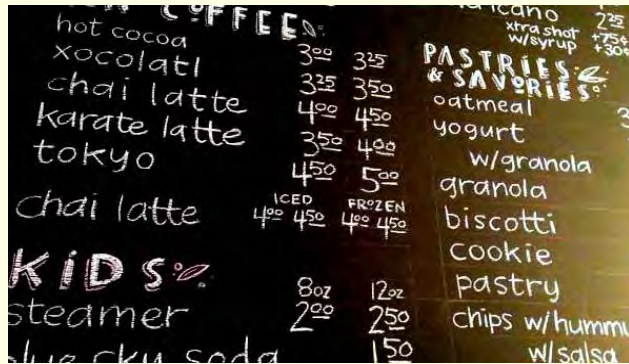 COFFEE
hot cocoa 3 00 3 25
xocolatl 3 25 3 50
chai latte 4 00 4 50
karate latte 3 50 4 00
tokyo 4 50 5 00
ICED FROZEN
chai latte 4 00 4 50 4 00 4 50
KIDS
8oz 12oz
steamer 2 00 2 50
soda 1 50
2 25
xtra shot +75¢
w/syrup +30¢
PASTRIES
& SAVORIES
oatmeal
yogurt
w/granola
granola
biscotti
cookie
pastry
chips w/hummu
w/salsa